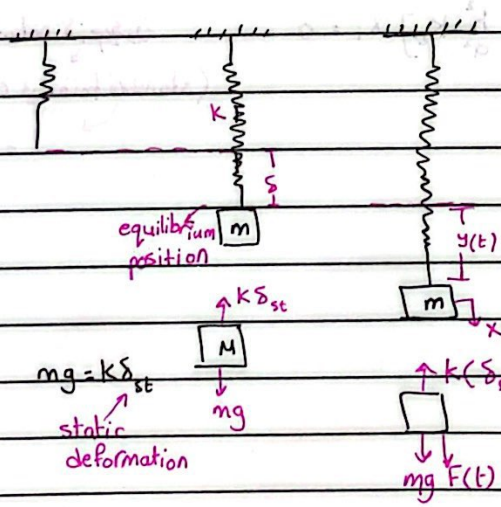 K
δ
equilibrium
position
m
y(t)
m
x
kδst
M
mg
mg = kδst
static
deformation
k(δ
mg F(t)